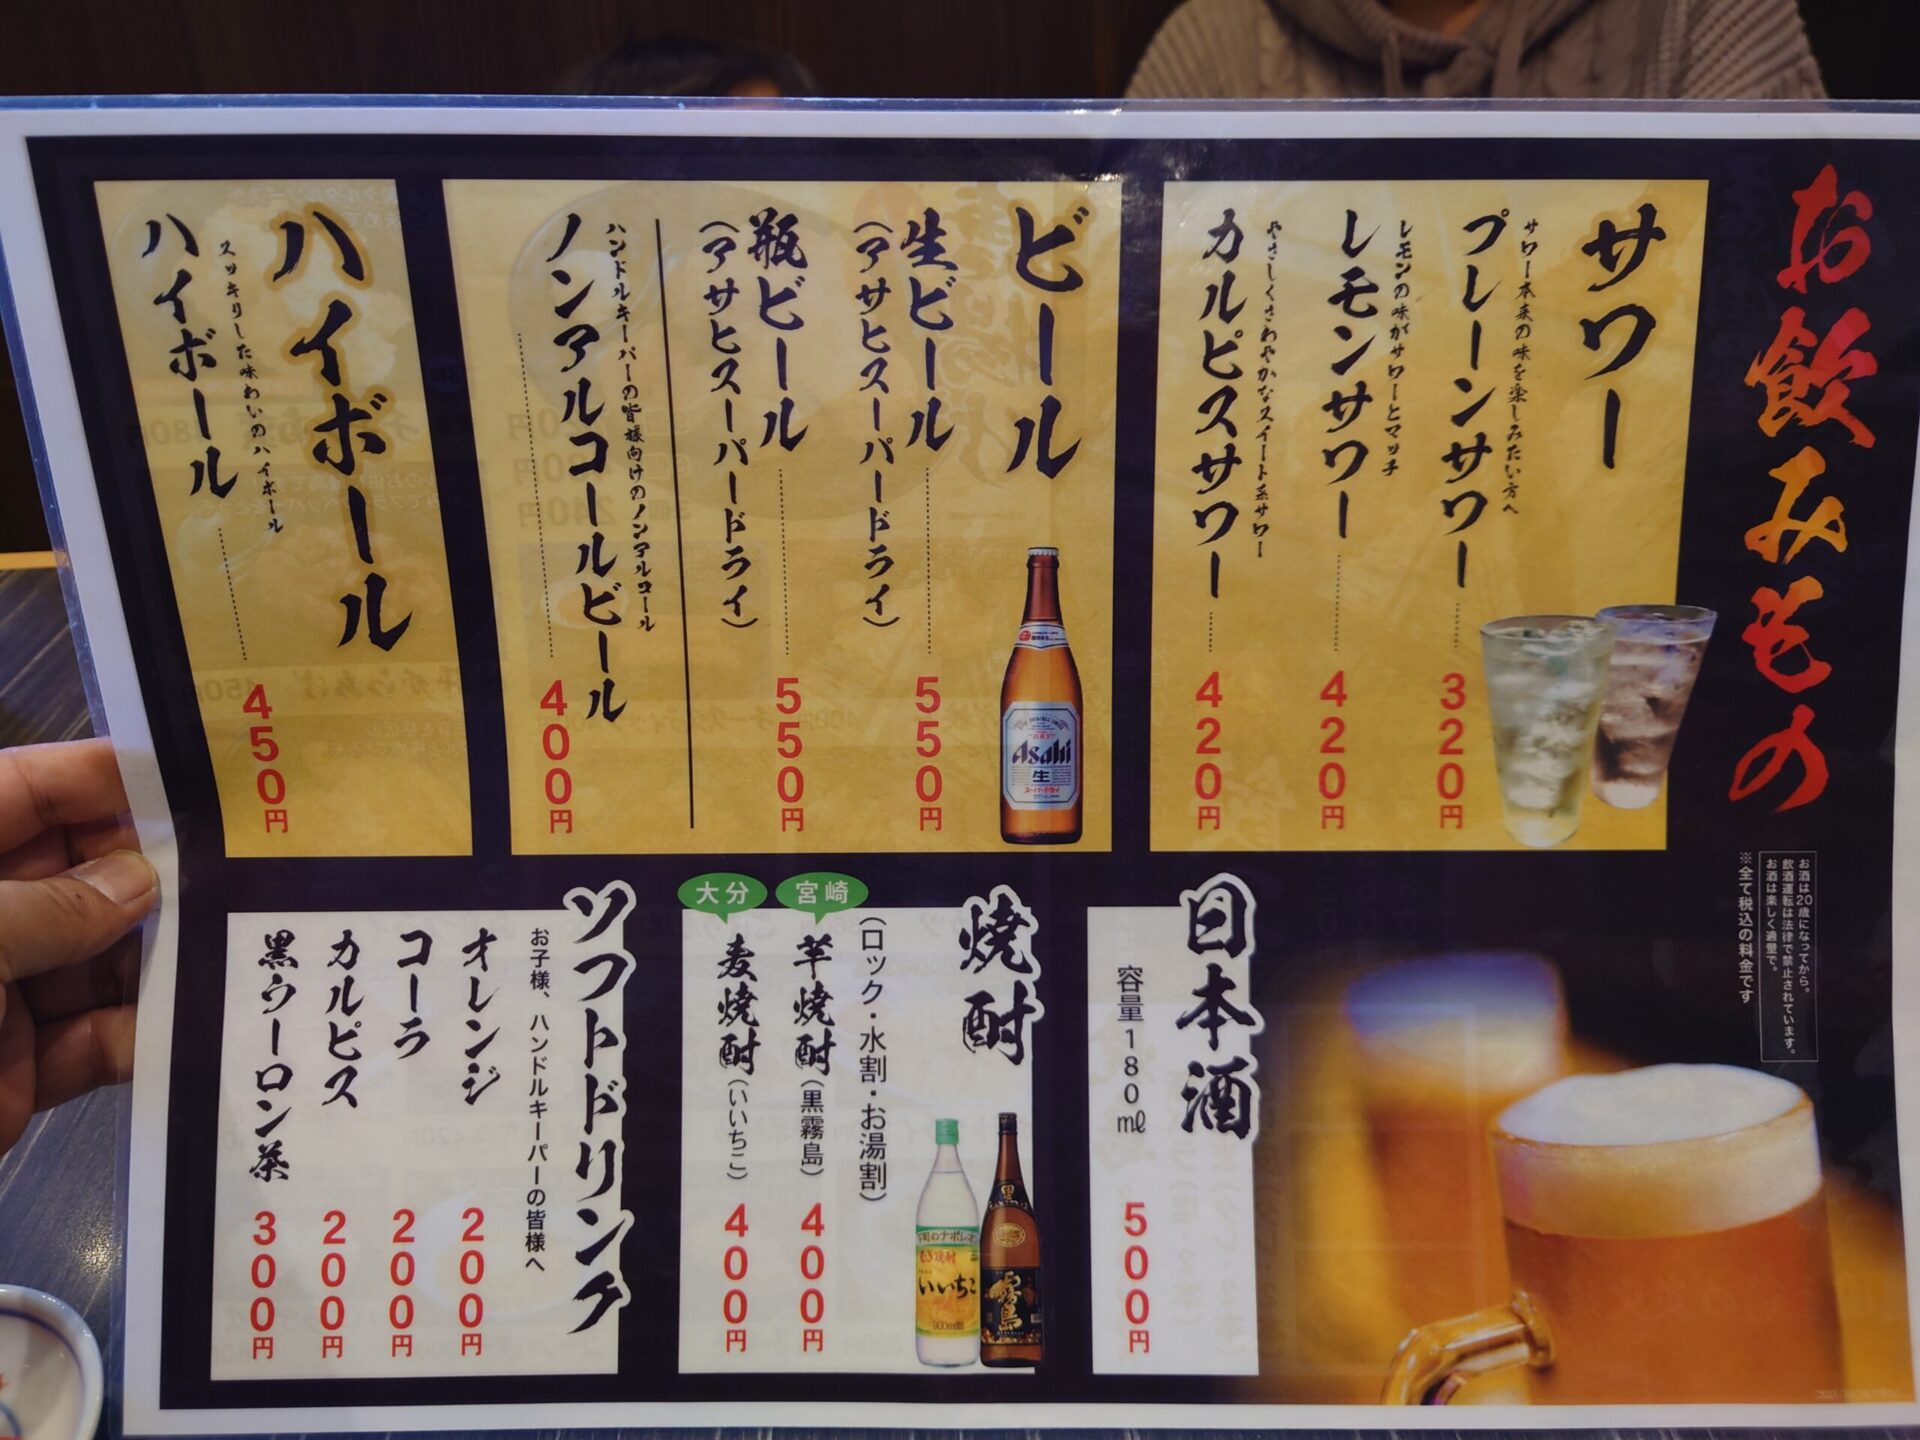 お飲みもの
お酒は20歳になってから。
飲酒運転は法律で禁止されています。
お酒は楽しく適量で。
※全て税込の料金です
サワー
サワー本来の味を楽しみたい方へ
プレーンサワー 320円
レモンの味がサワーとマッチ
レモンサワー 420円
やさしくさわやかなスイート系サワー
カルピスサワー 420円
ビール
生ビール 550円
(アサヒスーパードライ)
瓶ビール 550円
(アサヒスーパードライ)
ハンドルキーパーの皆様向けのノンアルコール
ノンアルコールビール 400円
Asahi
生
スーパードライ
ハイボール
スッキリした味わいのハイボール
ハイボール 450円
日本酒
容量180㎖ 500円
焼酎
(ロック・水割・お湯割)
宮崎
芋焼酎(黒霧島) 400円
大分
麦焼酎(いいちこ) 400円
いいちこ
900ml
黒
霧島
ソフトドリンク
お子様、ハンドルキーパーの皆様へ
オレンジ 200円
コーラ 200円
カルピス 200円
黒ウーロン茶 300円